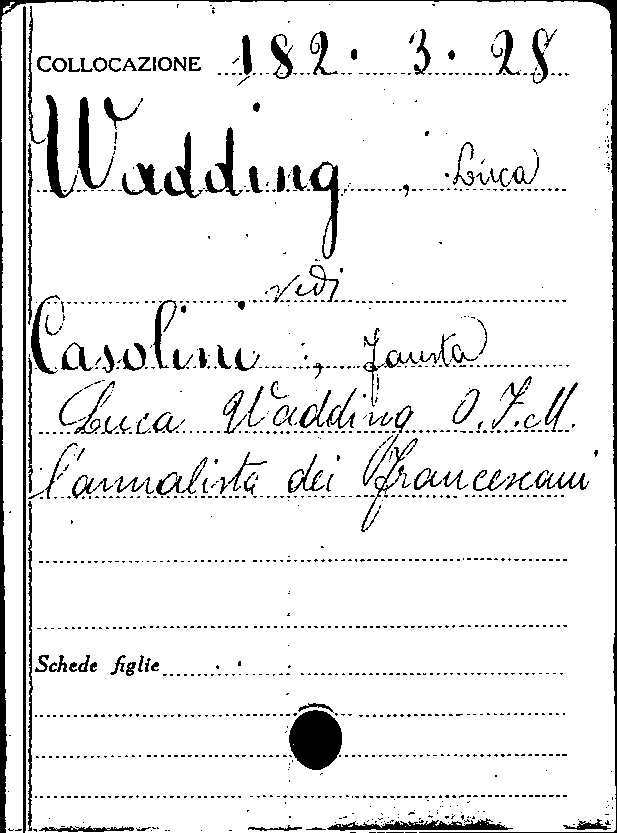 COLLOCAZIONE 182. 3. 28
Wadding, Luca
vedi
Casolini, Fausta
Luca Wadding O.F.M.
l'annalista dei Francescani
Schede figlie